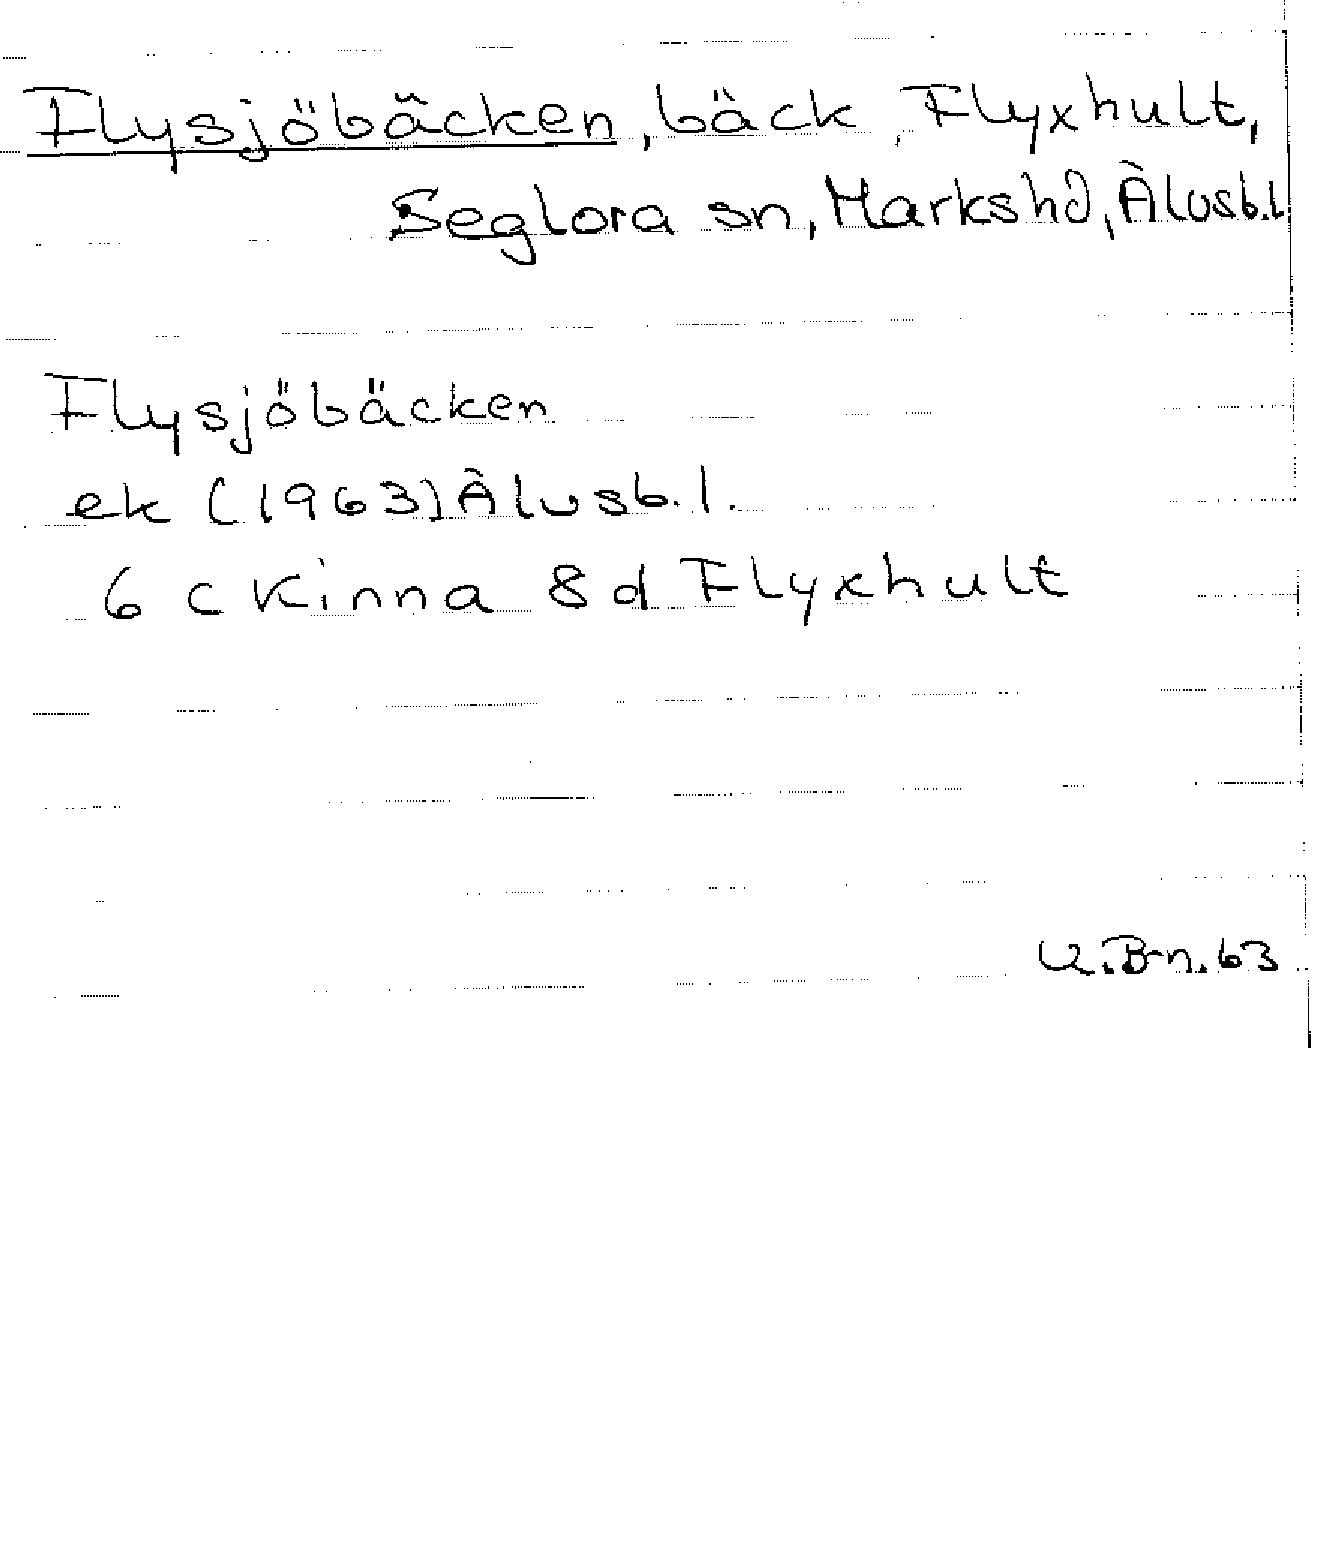 Flysjöbäcken, bäck, Flyxhult,
Seglora sn, Markshd, Älvsb.l.
Flysjöbäcken
ek (1963) Älvsb.l.
6 c Kinna 8 d Flyxhult
U.B-n.63